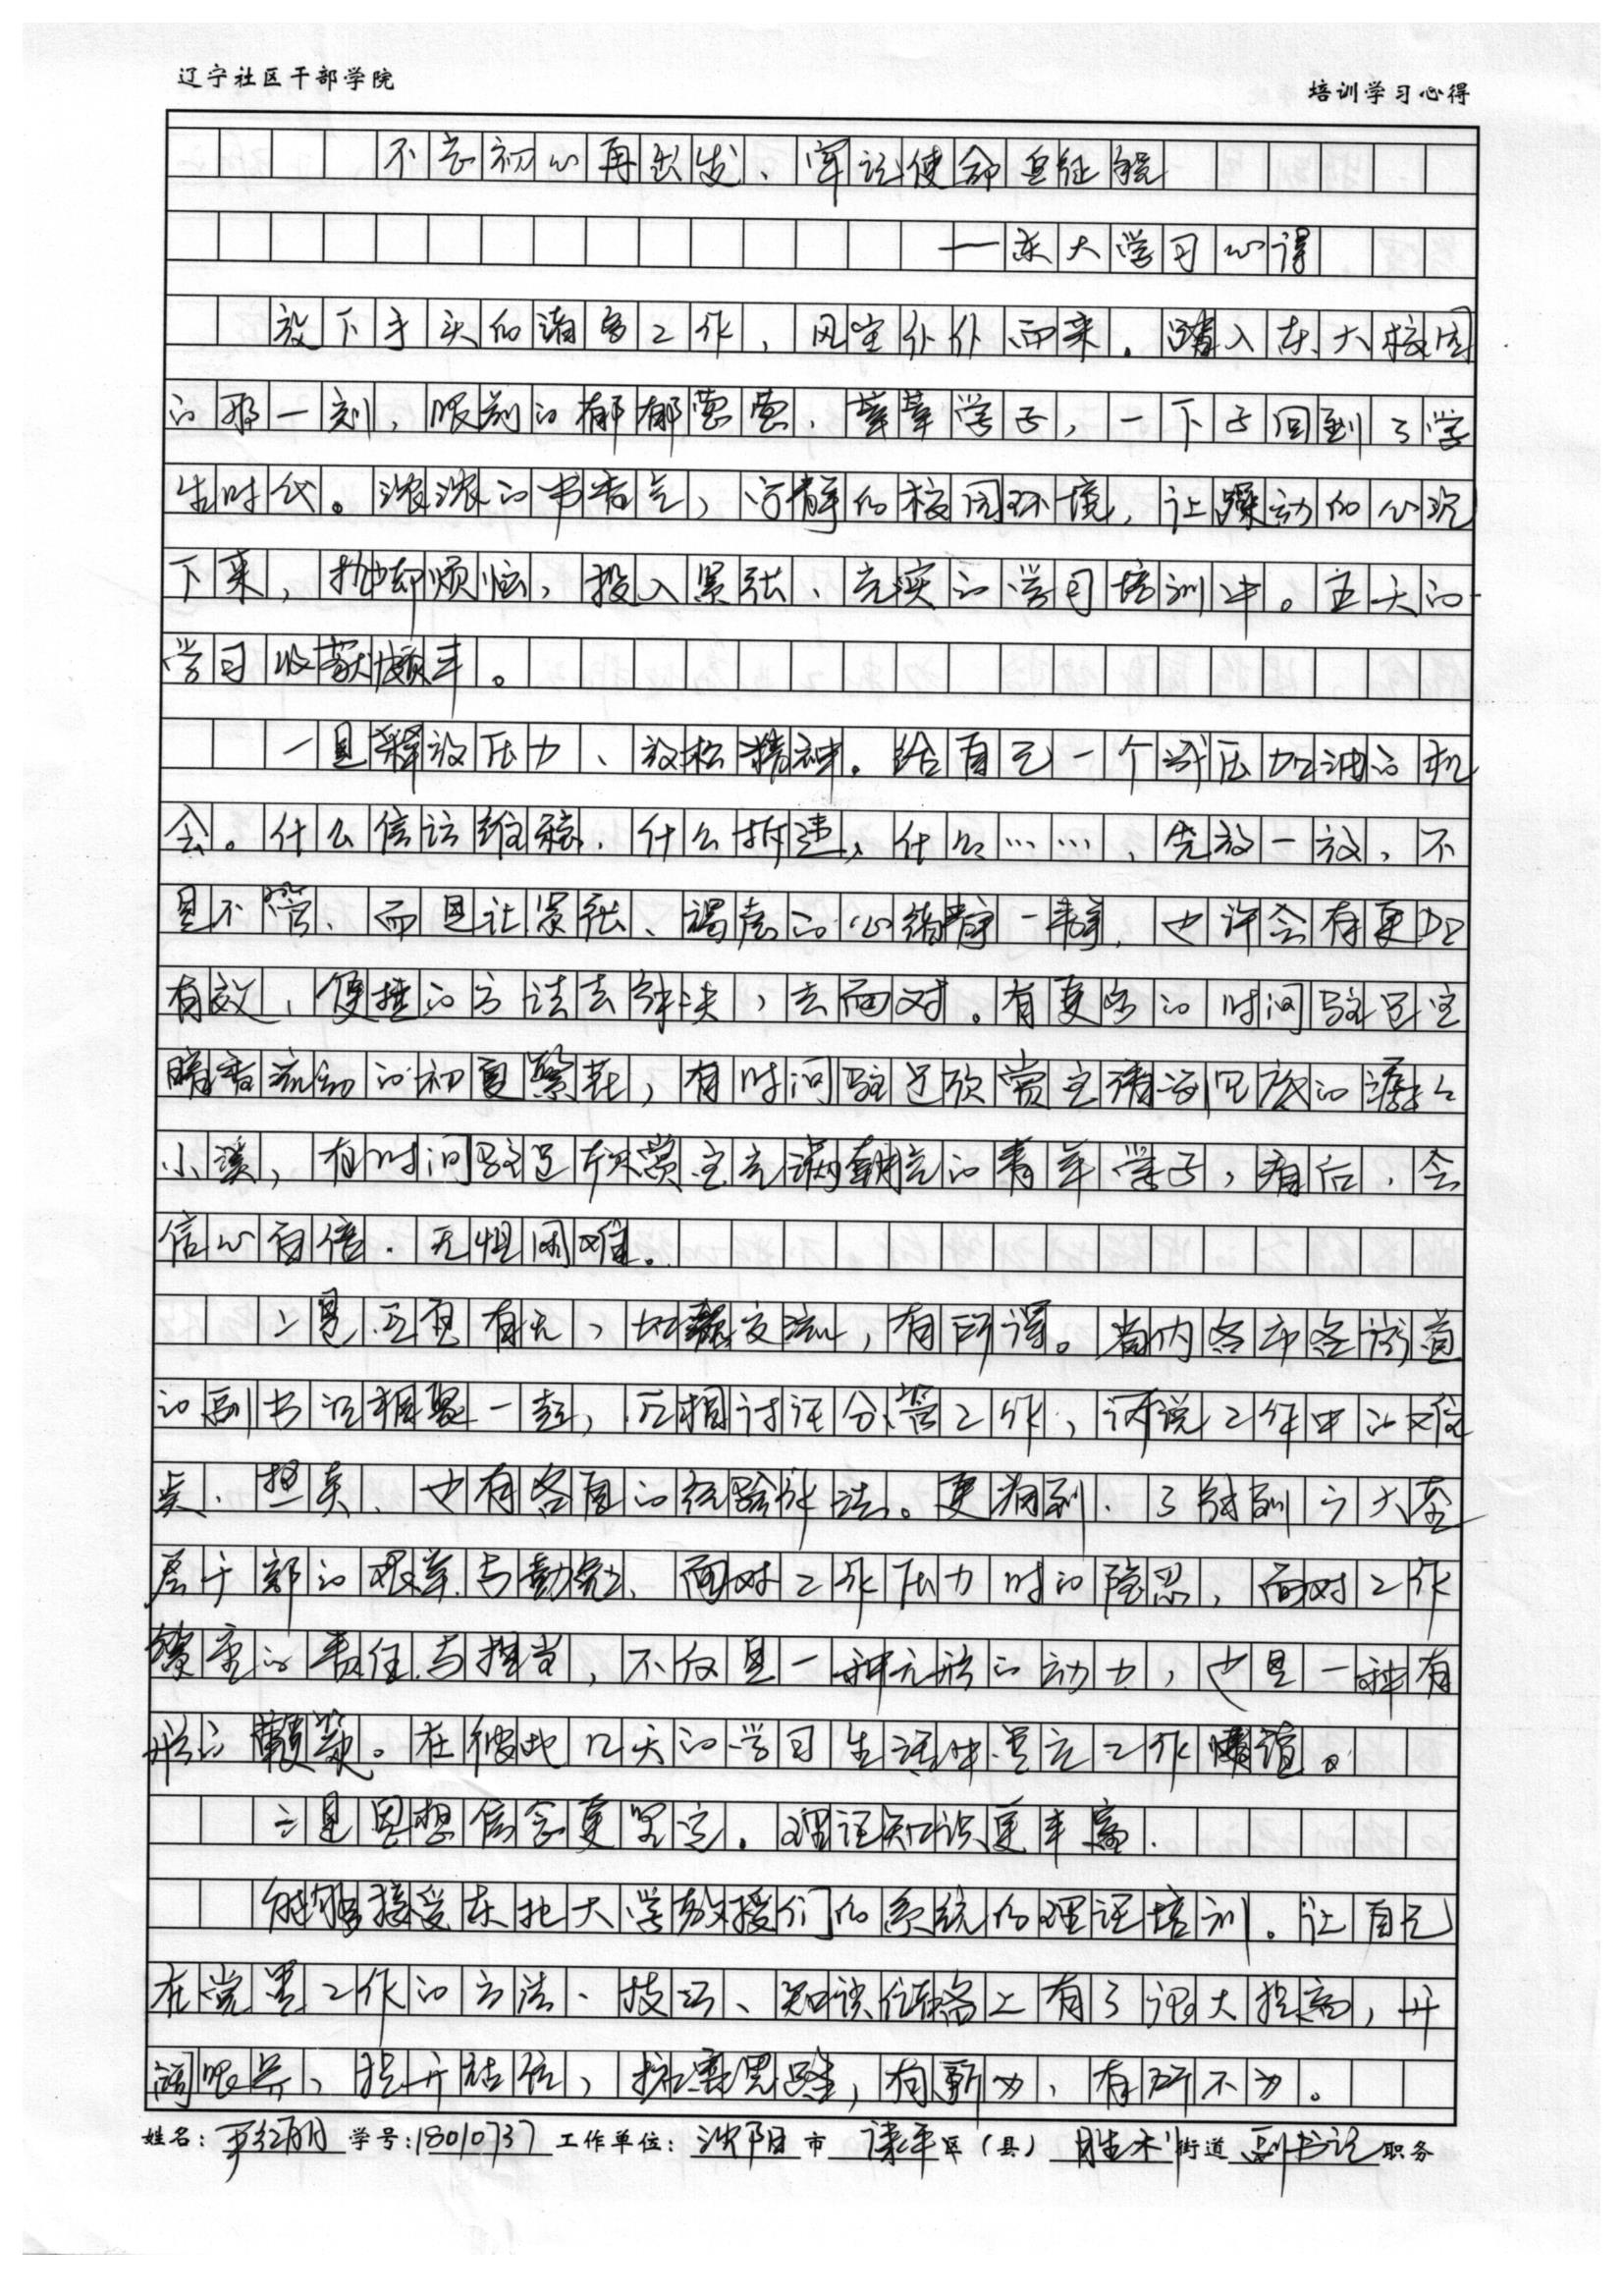 辽宁社区干部学院
培训学习心得
不忘初心再出发、牢记使命启征程
——东大学习心得
放下手头的诸多工作,风尘仆仆而来。踏入东大校园
的那一刻,眼前的郁郁葱葱,莘莘学子,一下子回到了学
生时代。浓浓的书香气,宁静的校园环境,让躁动的心沉
下来,抛却烦恼,投入紧张、充实的学习培训中。五天的
学习收获颇丰。
一是释放压力、放松精神。给自己一个减压加油的机
会。什么信访维稳,什么拆违,什么……,先放一放,不
是不管、而是让紧张、焦虑的心绪静一静,也许会有更加
有效、便捷的方法去解决,去面对。有更多的时间驻足空
暗香流动的初夏繁花,有时间驻足欣赏它清澈见底的潺潺
小溪,有时间驻足欣赏它充满朝气的青年学子,看后,会
信心百倍.无惧困难。
二是互通有无,切磋交流,有所得。省内各市各街道
的副书记相聚一起,互相讨论分管工作,诉说工作中的难
点、担责、也有各自的经验作法。更相到、了解到广大基
层干部的艰辛与勤勉、面对工作压力时的隐忍,面对工作
繁重的责任与担当,不仅是一种无形的动力,也是一种有
形的鞭策。在彼此几天的学习生活中建立工作情谊。
三是思想信念更坚定。理论知识更丰富.
能够接受东北大学教授们的系统的理论培训。让自己
在党建工作的方法、技巧、知识储备上有了很大提高,开
阔眼界、提升站位,拓宽思路,有新为、有所不为。
姓名: 学号:18010737 工作单位:沈阳市 区(县) 街道 副书记 职务